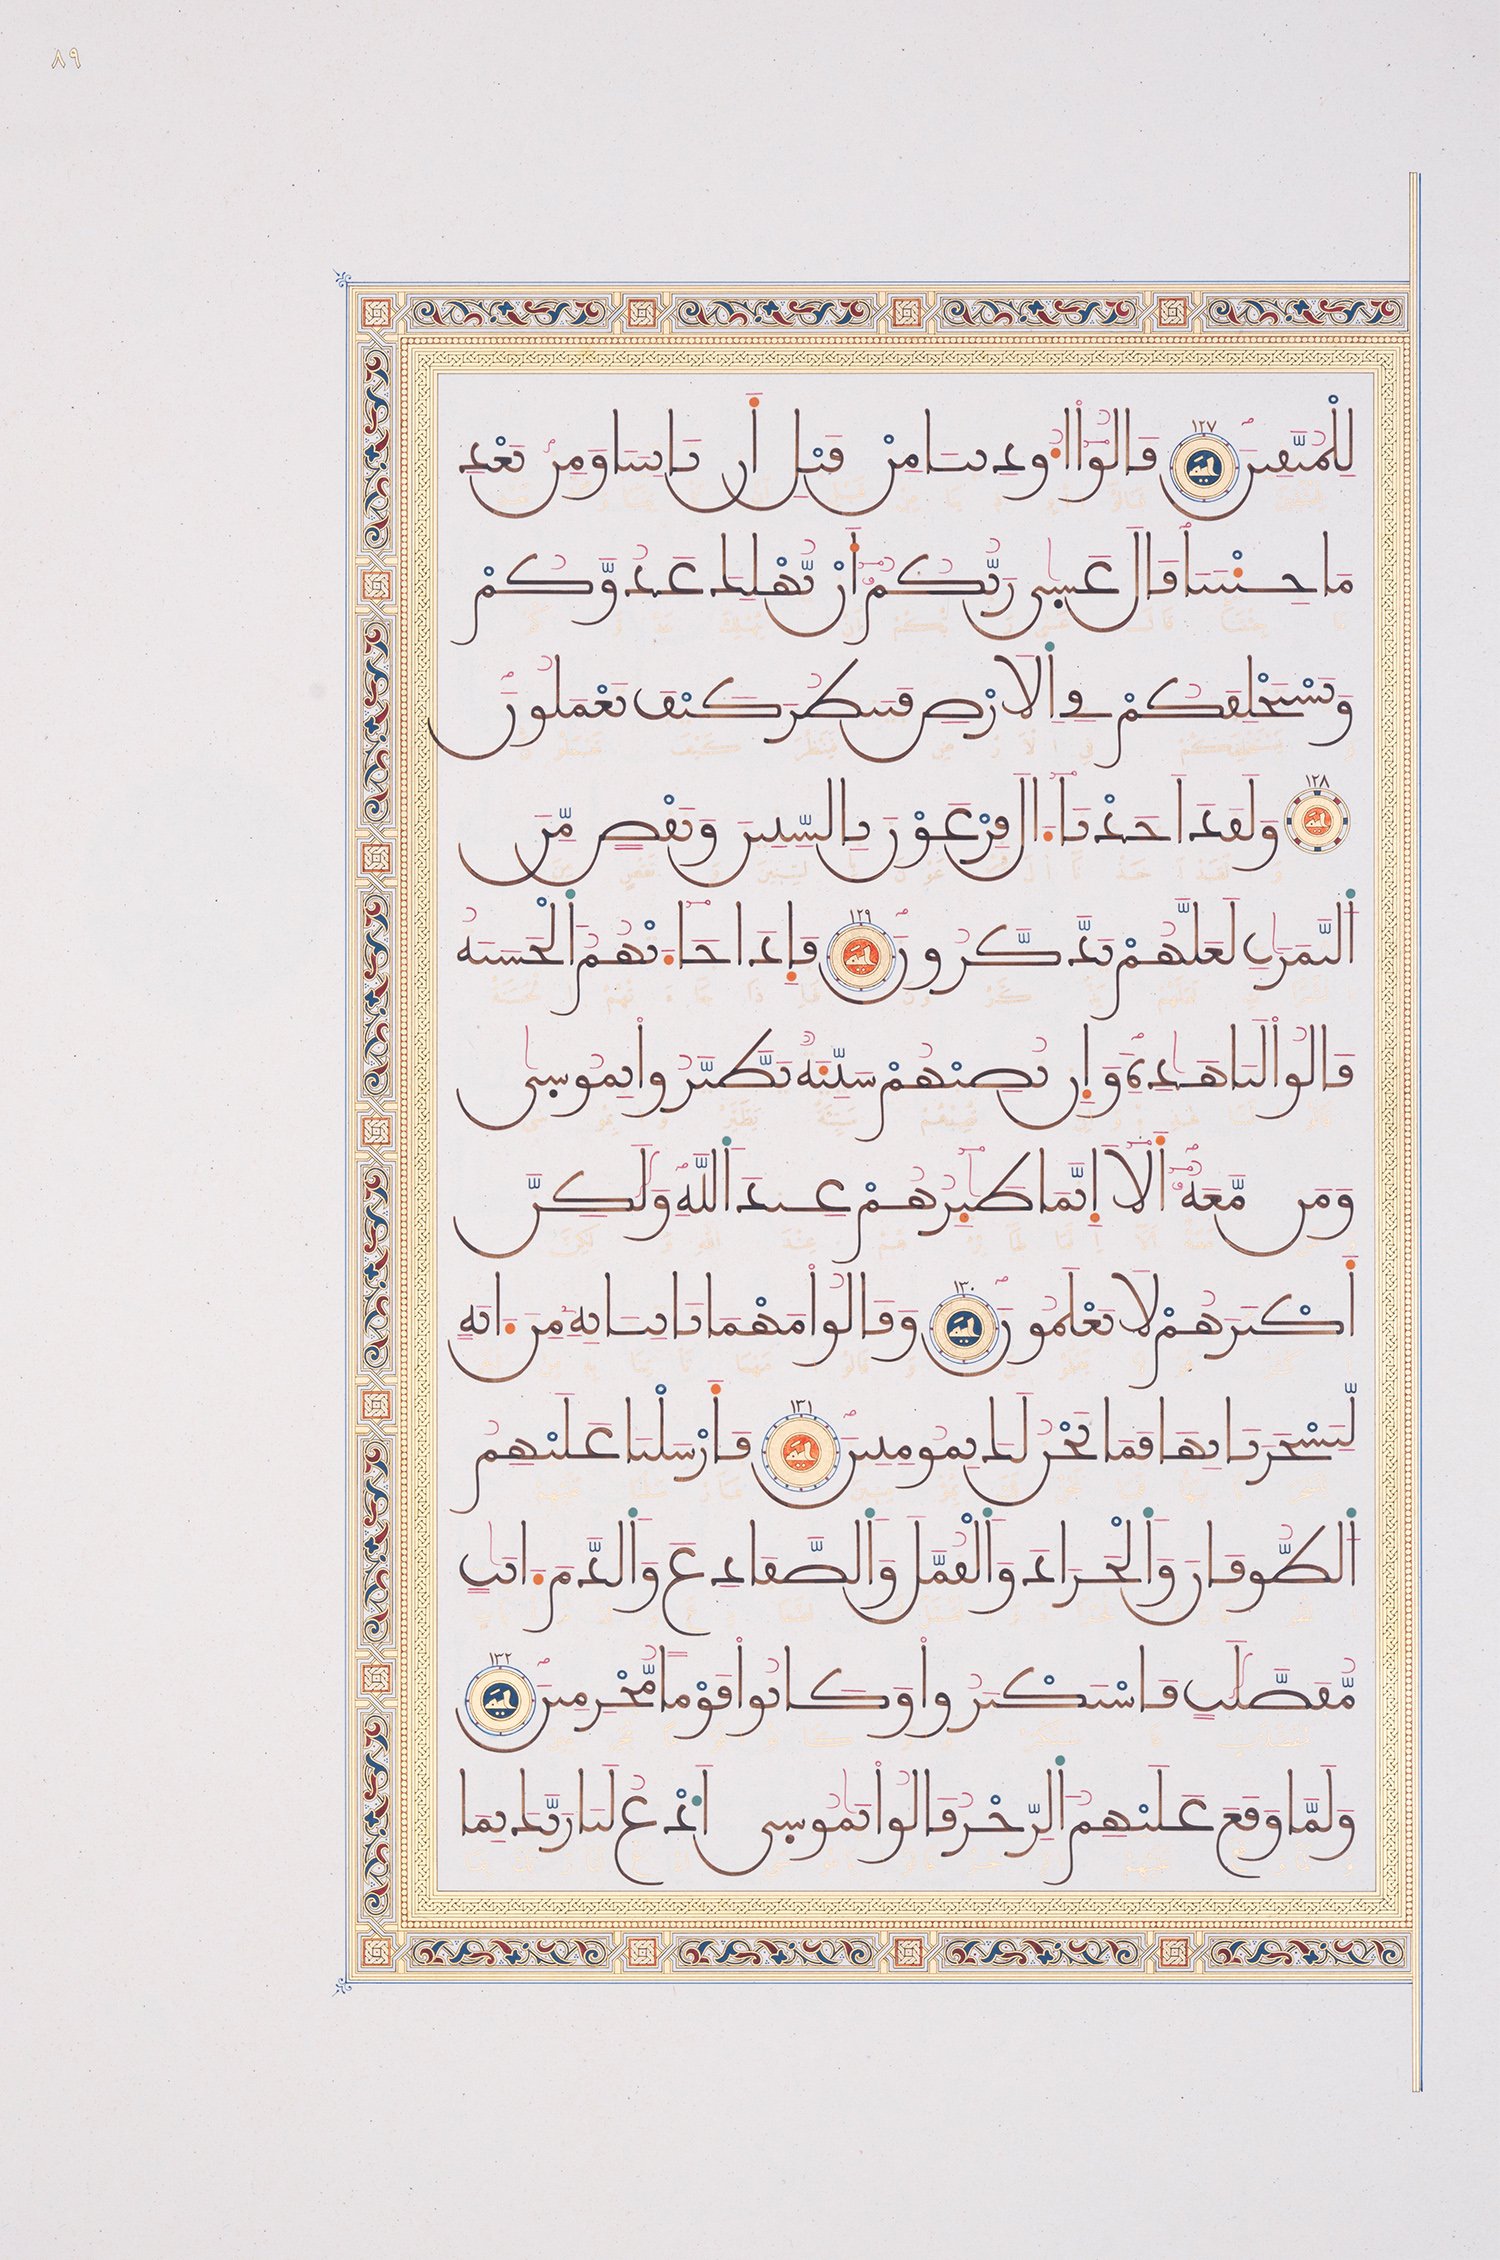 ٨٩
لِلْمُتَّقِينَ ١٢٧ قَالُوٓا۟ أُوذِينَا مِن قَبْلِ أَن تَاتِيَنَا وَمِنۢ بَعْدِ
مَا جِئْتَنَا قَالَ عَسَىٰ رَبُّكُمُۥٓ أَنْ يُّهْلِكَ عَدُوَّكُمْ
وَيَسْتَخْلِفَكُمْ فِي اِلَارْضِ فَيَنظُرَ كَيْفَ تَعْمَلُونَ
١٢٨ وَلَقَدَ اَخَذْنَآ ءَالَ فِرْعَوْنَ بِالسِّنِينَ وَنَقْصٍ مِّنَ
اَلثَّمَرَٰتِ لَعَلَّهُمْ يَذَّكَّرُونَ ١٢٩ فَإِذَا جَآءَتْهُمُ اُلْحَسَنَةُ
قَالُوا۟ لَنَا هَٰذِهِۦ وَإِن تُصِبْهُمْ سَيِّئَةٌ يَطَّيَّرُوا۟ بِمُوسَىٰ
وَمَن مَّعَهُۥٓ أَلَآ إِنَّمَا طَٰٓئِرُهُمْ عِندَ اَللَّهِ وَلَٰكِنَّ
أَكْثَرَهُمْ لَا يَعْلَمُونَ ١٣٠ وَقَالُوا۟ مَهْمَا تَاتِنَا بِهِۦ مِنَ ءَايَةٍ
لِّتَسْحَرَنَا بِهَا فَمَا نَحْنُ لَكَ بِمُومِنِينَ ١٣١ فَأَرْسَلْنَا عَلَيْهِمُ
اُلطُّوفَانَ وَاَلْجَرَادَ وَاَلْقُمَّلَ وَاَلضَّفَادِعَ وَاَلدَّمَ ءَايَٰتٍ
مُّفَصَّلَٰتٍ فَاسْتَكْبَرُوا۟ وَكَانُوا۟ قَوْمًا مُّجْرِمِينَ ١٣٢
وَلَمَّا وَقَعَ عَلَيْهِمُ اُلرِّجْزُ قَالُوا۟ يَٰمُوسَى اَدْعُ لَنَا رَبَّكَ بِمَا